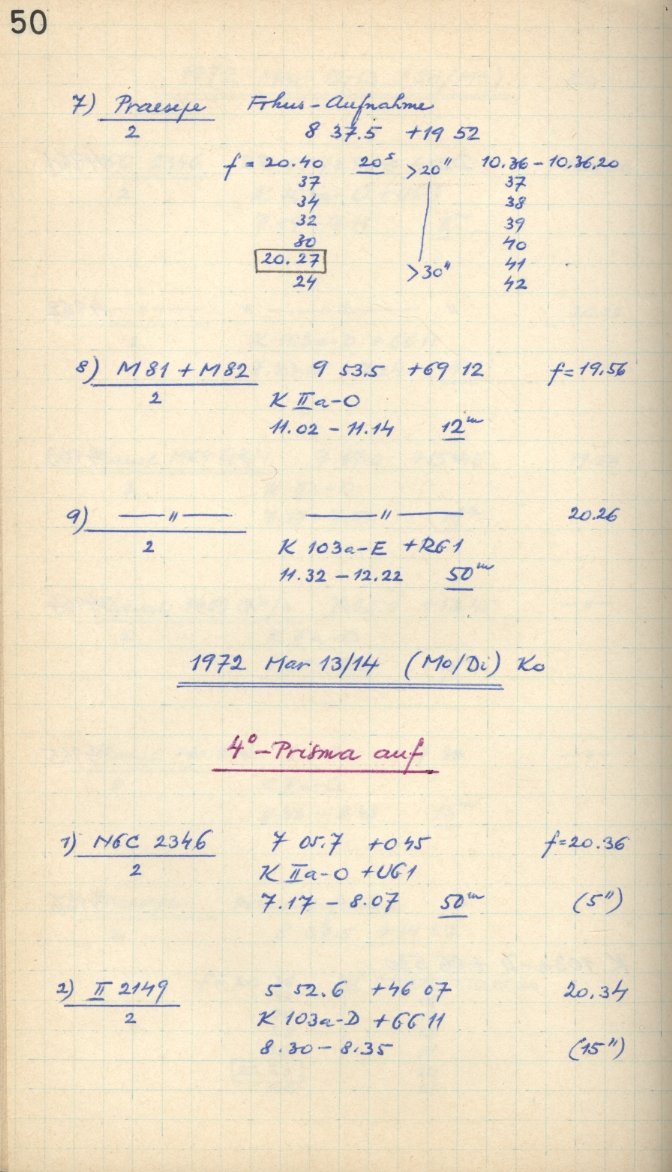 50
7) Praesepe Fokus-Aufnahme
2 8 37.5 +19 52
f = 20.40 20ˢ >20" 10.36 – 10.36.20
37 37
34 38
32 39
30 40
20.27 41
24 >30" 42
8) M 81 + M 82 9 53.5 +69 12 f=19.56
2 K IIa-O
11.02 – 11.14 12ᵐ
9) —— " —— —— " —— 20.26
2 K 103a-E +RG1
11.32 – 12.22 50ᵐ
1972 Mar 13/14 (Mo/Di) Ko
4°-Prisma auf
1) NGC 2346 7 05.7 +0 45 f=20.36
2 K IIa-O +UG1
7.17 – 8.07 50ᵐ (5")
2) II 2149 5 52.6 +46 07 20.34
2 K 103a-D +GG11
8.30 – 8.35 (15")